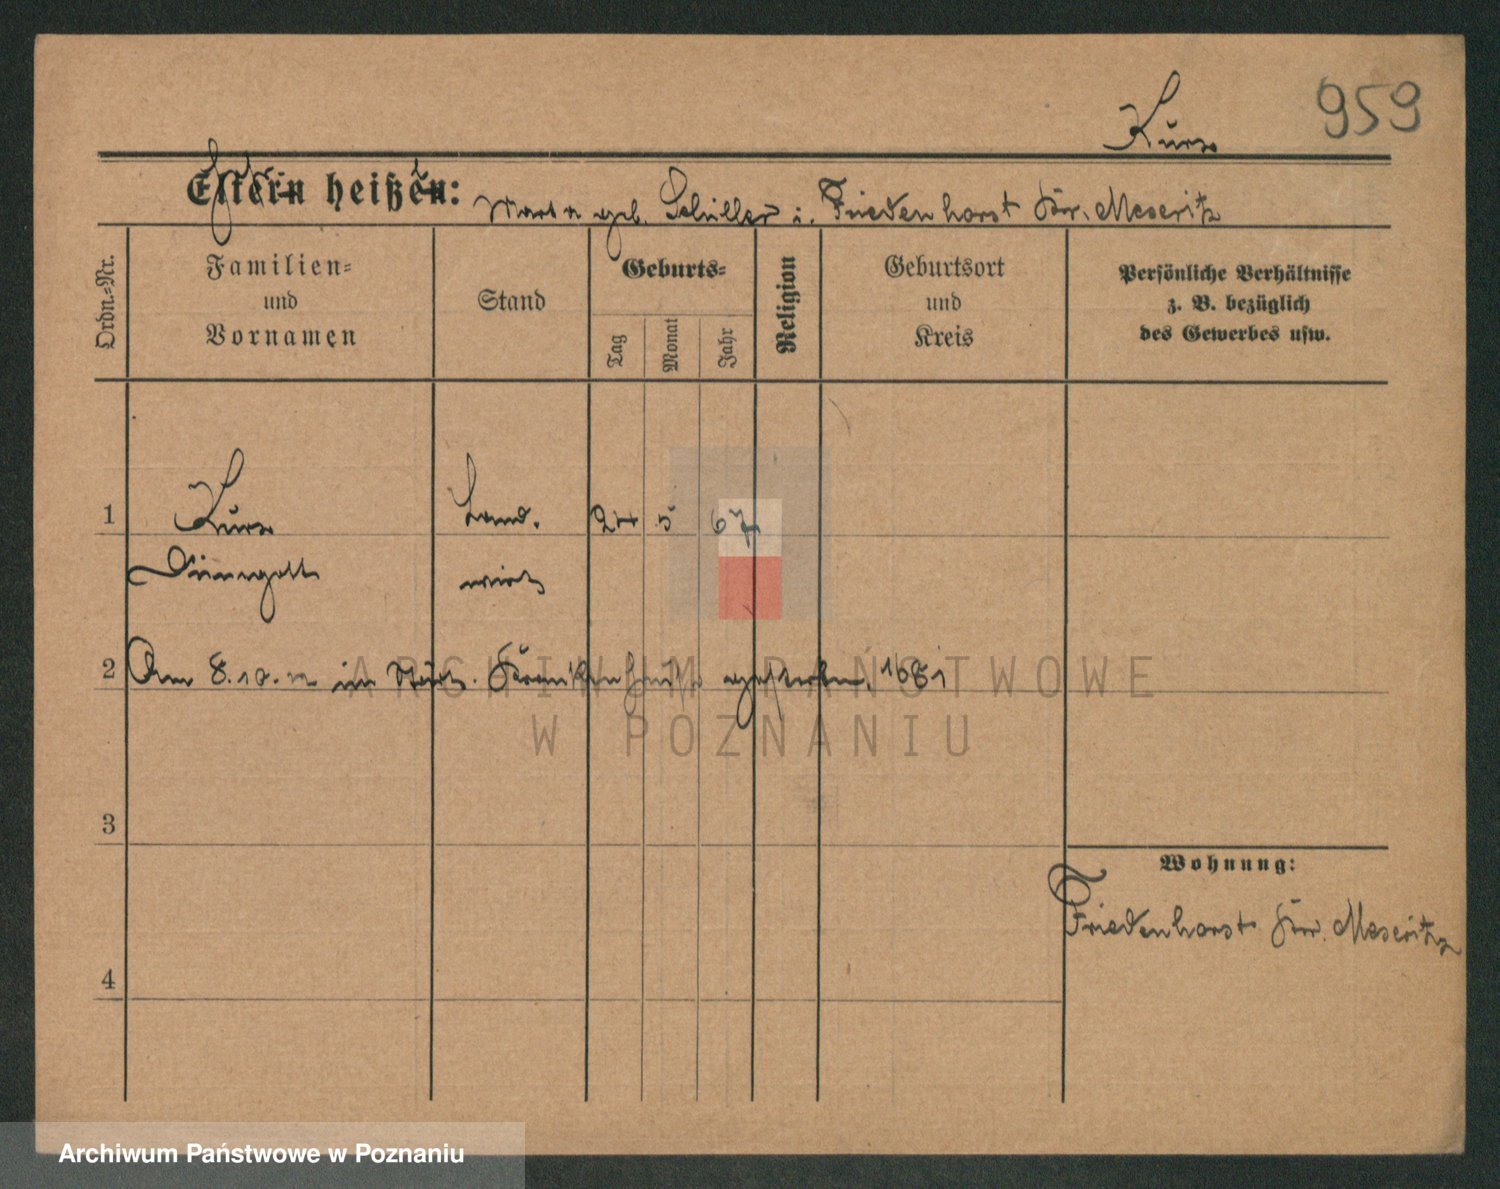 959
Kurz
Eltern heißen: geb. Schiller i. Friedenhorst Kr. Meseritz
Ordn.-Nr.
Familien-
und
Vornamen
Stand
Geburts-
Tag
Monat
Jahr
Religion
Geburtsort
und
Kreis
Persönliche Verhältnisse
z. B. bezüglich
des Gewerbes usw.
1 Kurz Land. 24 5 67
wirt
2 Am 8.10. im Städt. Krankenhause gestorben. 1681
3
Wohnung:
Friedenhorst Kr. Meseritz
4
ARCHIWUM PAŃSTWOWE
W POZNANIU
Archiwum Państwowe w Poznaniu